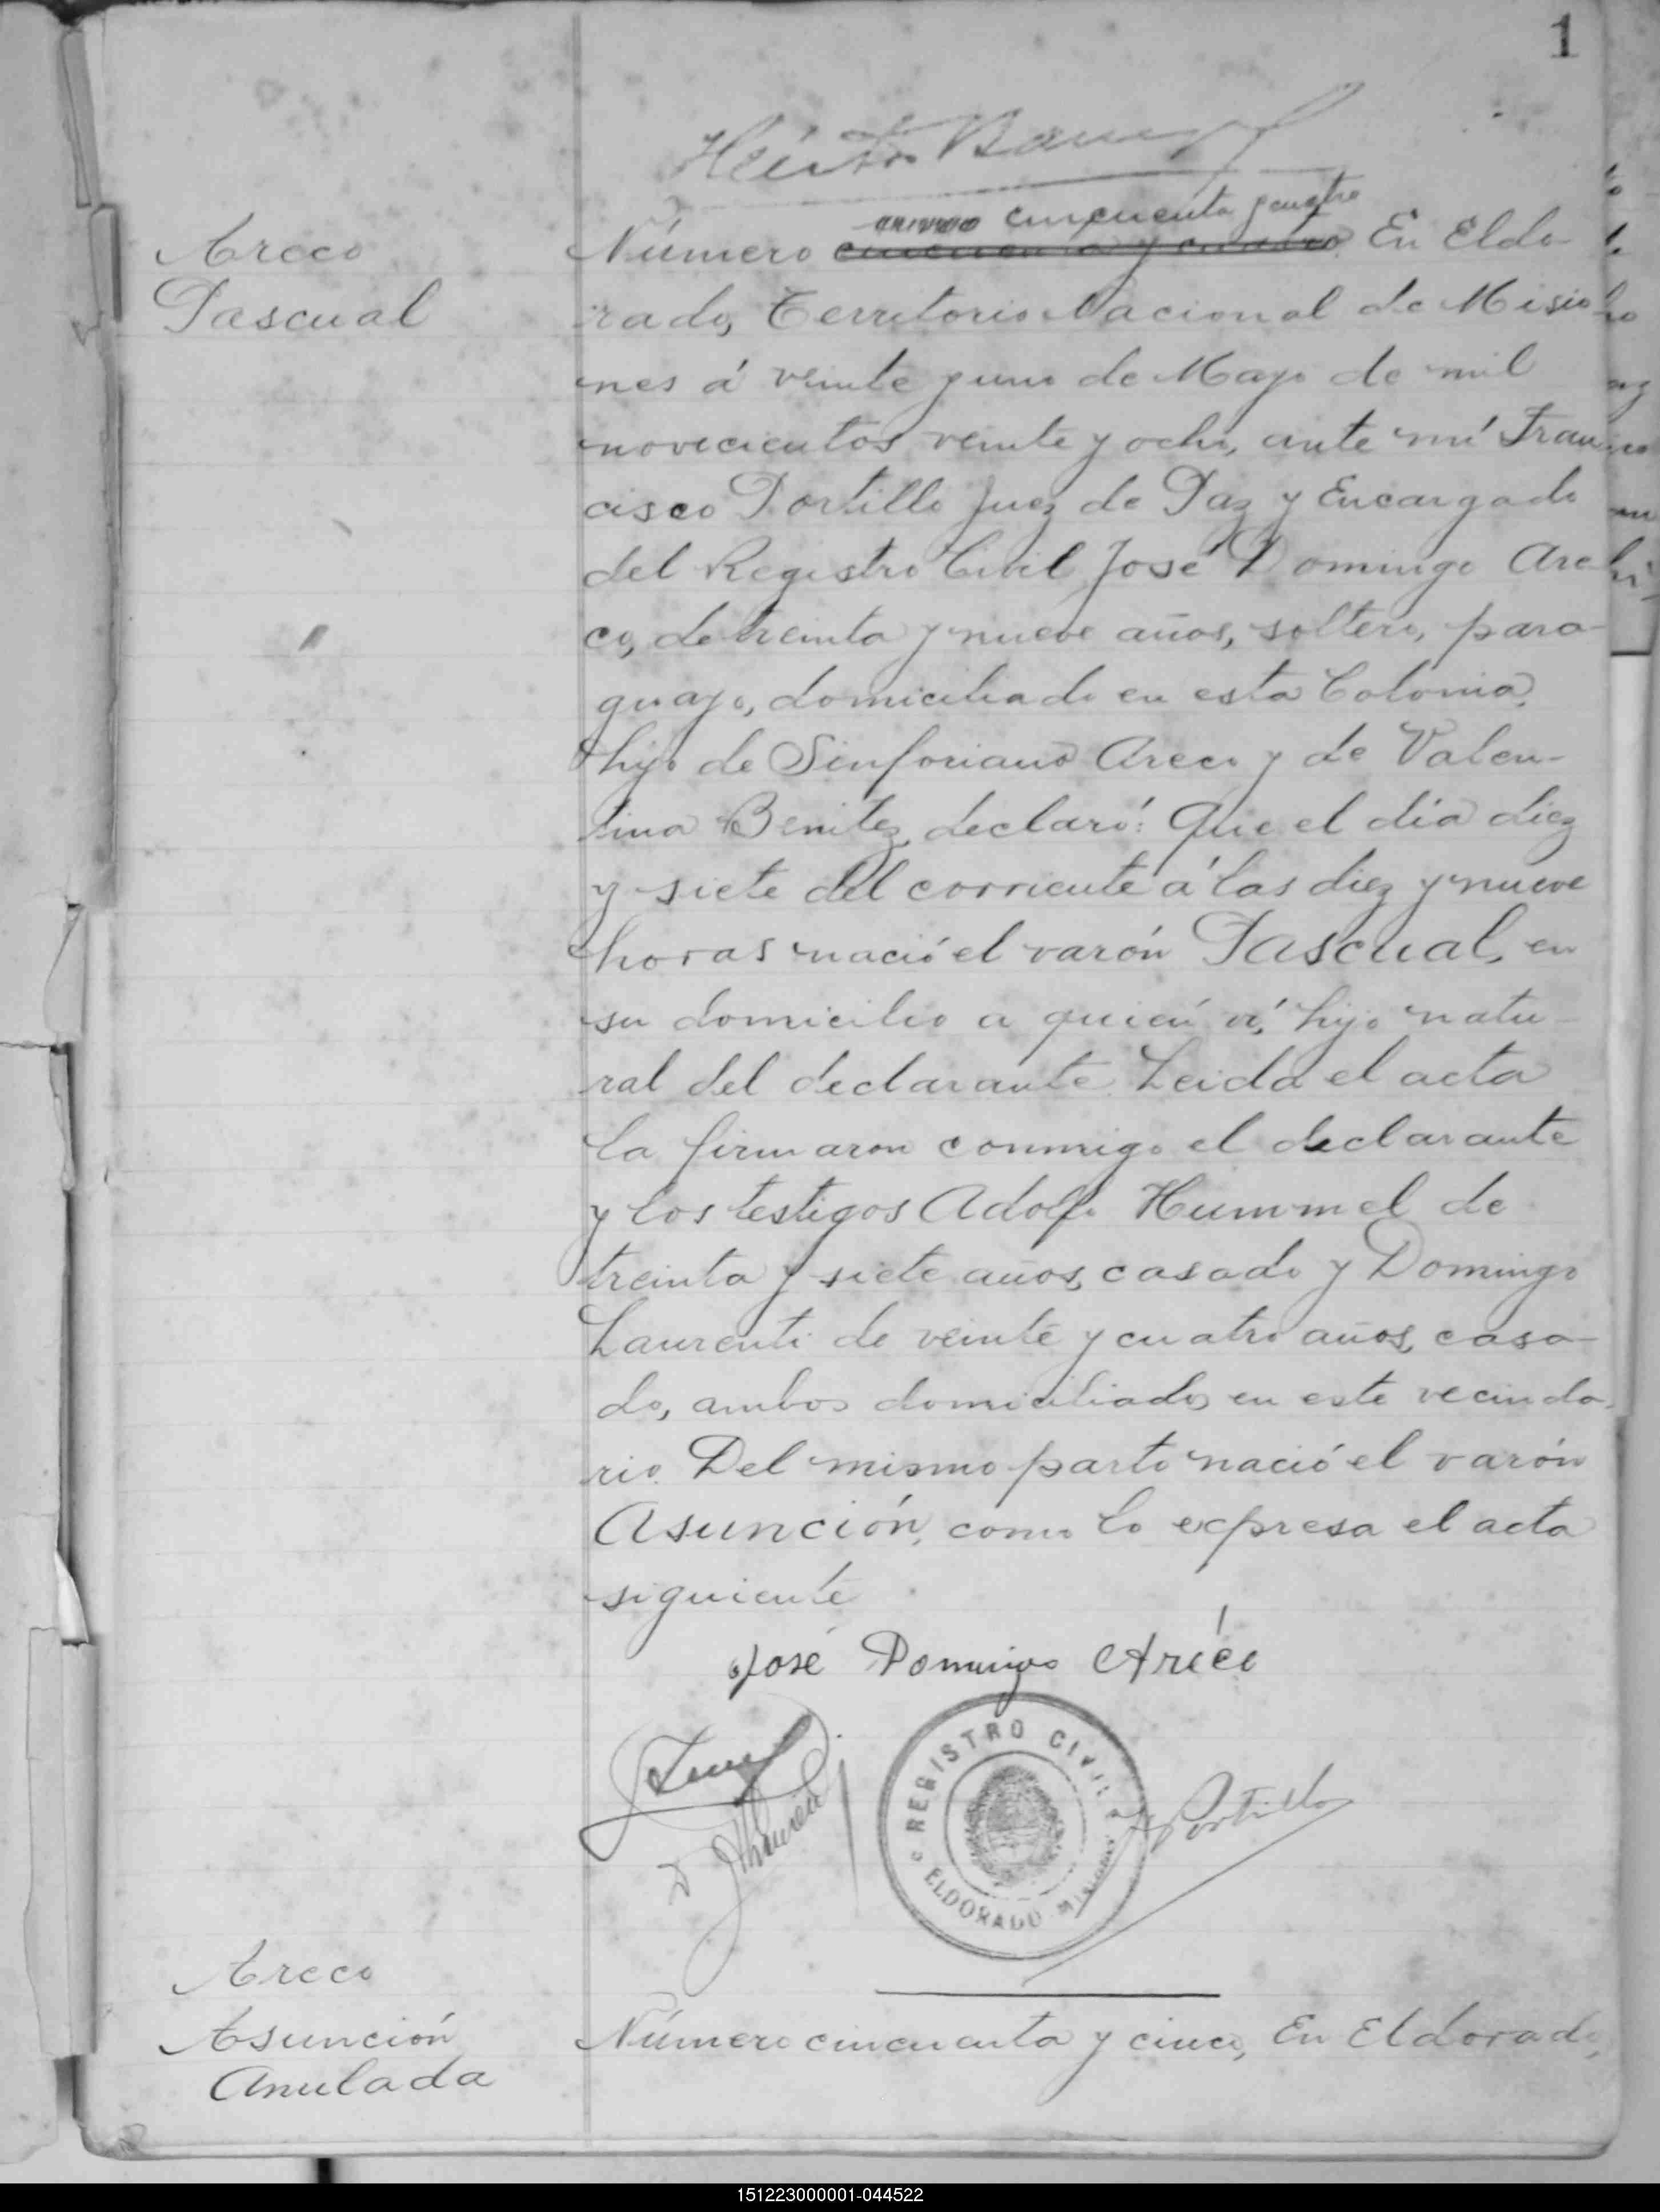 1
Areco
Pascual
cincuenta y cuatro
Número cincuenta y cuatro. En Eldo-
rado, Territorio Nacional de Misio-
nes á veinte y uno de Mayo de mil
novecientos veinte y ocho, ante mí Fran-
cisco Portillo Juez de Paz y Encargado
del Registro Civil José Domingo Are-
co, de treinta y nueve años, soltero, para-
guayo, domiciliado en esta Colonia,
hijo de Sinforiano Areco y de Valen-
tina Benitez, declaró: Que el día diez
y siete del corriente á las diez y nueve
horas nació el varón Pascual, en
su domicilio a quien ví, hijo natu-
ral del declarante. Leida el acta
la firmaron conmigo el declarante
y los testigos Adolfo Hummel de
treinta y siete años, casado y Domingo
Laurenti de veinte y cuatro años, casa-
do, ambos domiciliados en este vecinda-
rio. Del mismo parto nació el varón
Asunción, como lo expresa el acta
siguiente
José Domingo Aréco
REGISTRO CIVIL
ELDORADO MISIONES
Portillo
Areco
Asunción
Anulada
Número cincuenta y cinco, En Eldorado,
151223000001-044522